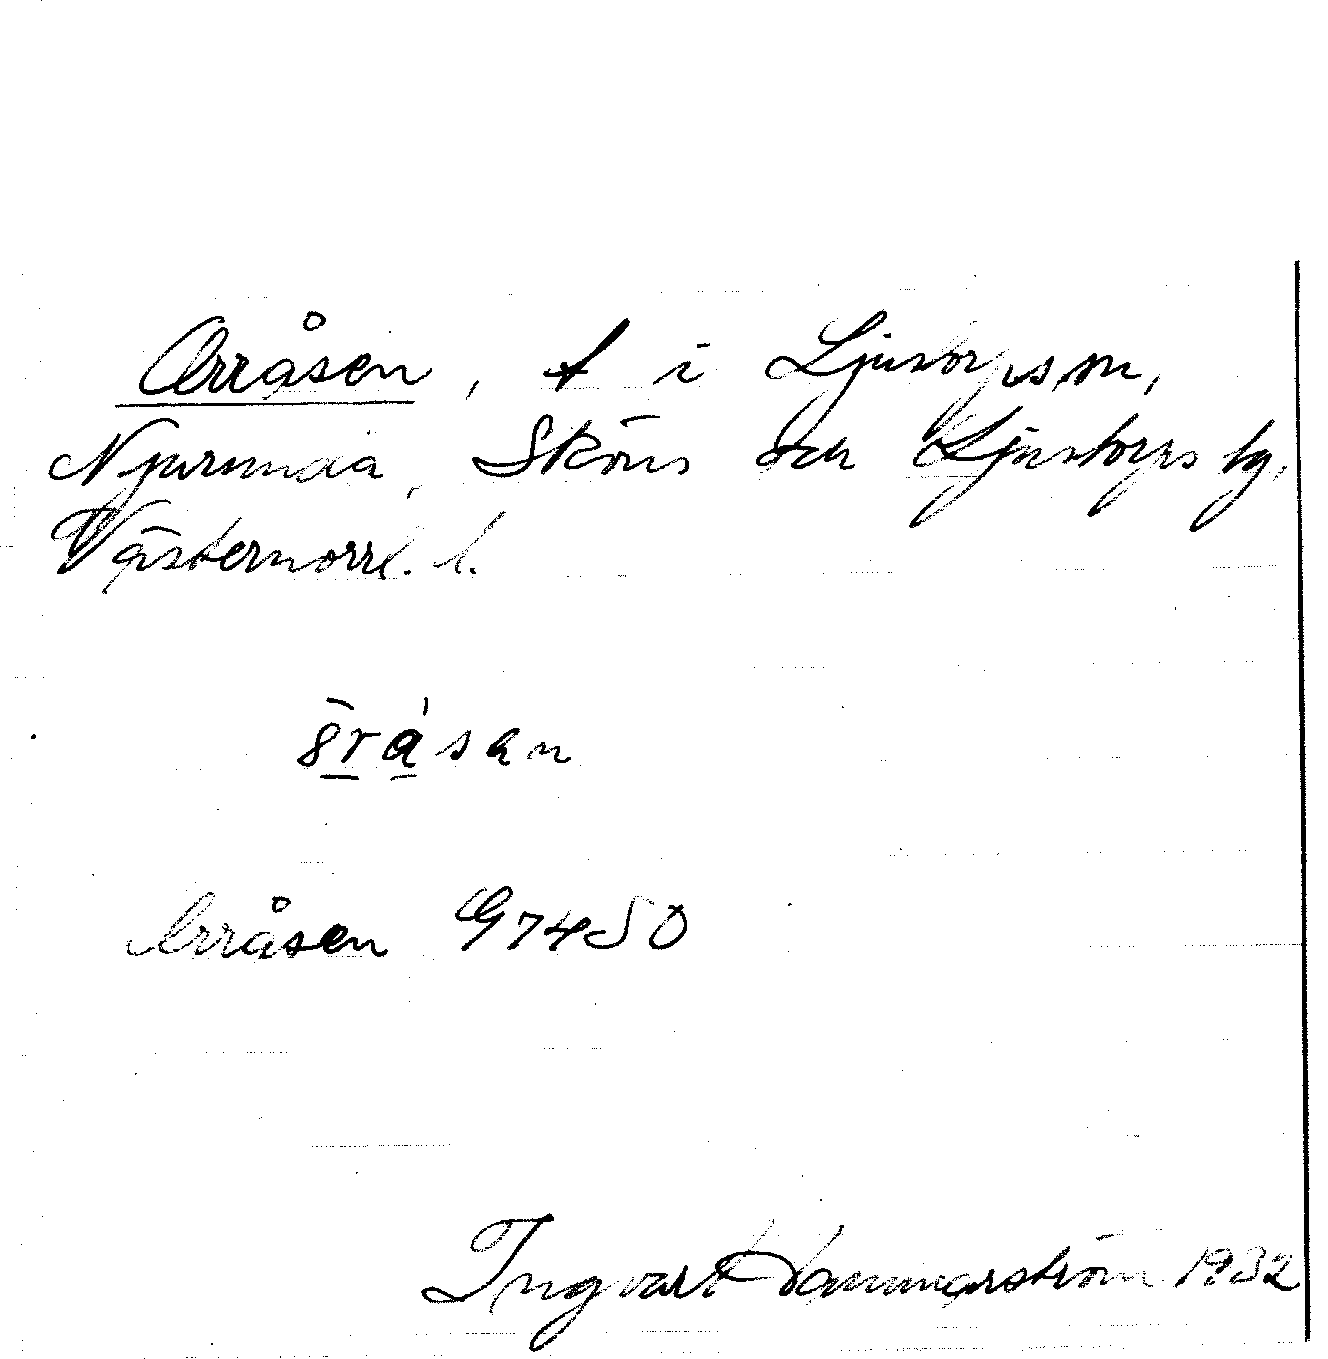 Orråsen, t i Ljustorps sn,
Njurunda, Sköns och Ljustorps tg,
Västernorrl. l.
Orråsen G7450
Ingvart Hammarström 1932